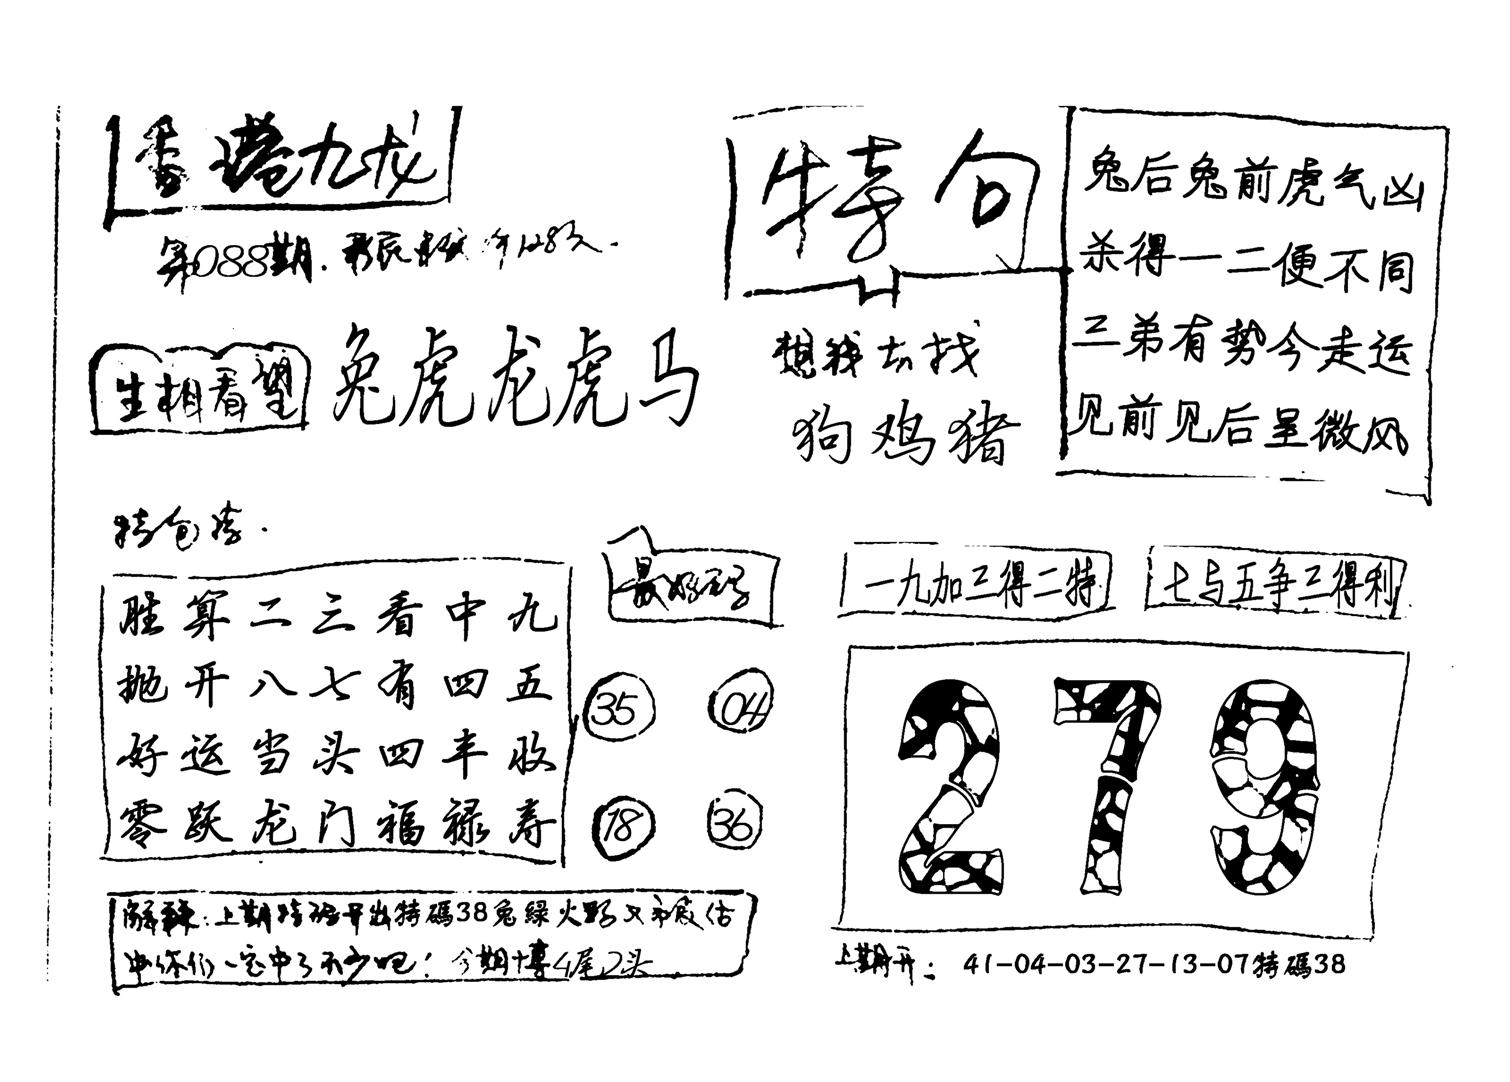 香港九龙
第088期.
生相看望
兔虎龙虎马
特句
想我去找
狗鸡猪
兔后兔前虎气凶
杀得一二便不同
三弟有势今走运
见前见后呈微风
特包庄.
胜算二三看中九
抛开八七有四五
好运当头四丰收
零跃龙门福禄寿
最好码
35 04
18 36
一九加三得二特
七与五争三得利
279
上期特码开出特碼38兔綠火
一定中了不少吧! 今期博4尾2头
上期开: 41-04-03-27-13-07特碼38